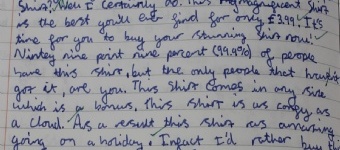 Shirt? Well I certainly do. This magnificent shirt
is the best you'll ever find for only £3.99! It's
time for you to buy your stunning shirt now!
Nintey nine point nine percent (99.9%) of people
have this shirt, but the only people that haven't
got it, are you. This shirt comes in any size
which is a bonus, this shirt is as comfy as
a cloud. As a result this shirt was amazing
going on a holiday. Infact I'd rather buy this